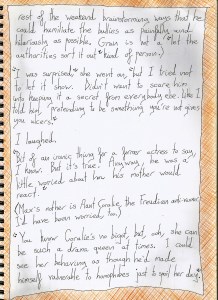 rest of the weekend brainstorming ways that he
could humiliate the bullies as painfully and
hilariously as possible. Grain is not a "let the
authorities sort it out" kind of person.)
"I was surprised," she went on, "but I tried not
to let it show. Didn't want to scare him
into keeping it a secret from everybody else. Like I
told him, 'pretending to be something you're not gives
you ulcers.'"
I laughed.
"Bit of an ironic thing for a former actress to say,
I know. But it's true. Anyway, he was a
little worried about how his mother would
react."
(Max's mother is Hunt the Freudian
I'd have been worried, too.)
"You know no bigot, but, oh, she can
be such a drama queen at times. I could
see her behaving as though he'd made
himself vulnerable to homophobes just to spoil her day."